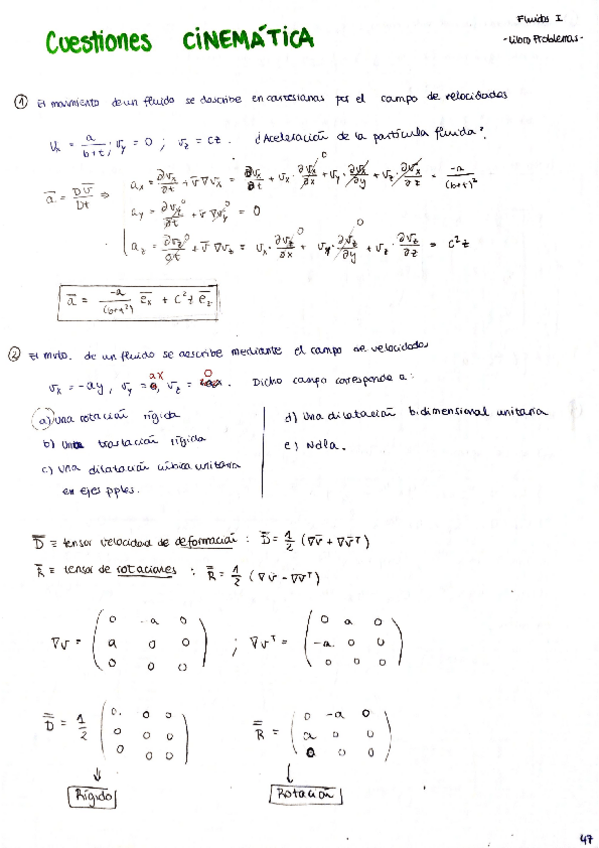 Fluidos I
- Libro Problemas -
Cuestiones CINEMÁTICA
① El movimiento de un fluido se describe en cartesianas por el campo de velocidades
Vx = a/(b+t) ; Vy = 0 ; Vz = cz . ¿Aceleración de la partícula fluida?
a̅ = Dv̅/Dt ⇒ ax = ∂Vx/∂t + v̅ ∇Vx = ∂Vx/∂t + Vx · ∂Vx/∂x + Vy · ∂Vx/∂y + Vz · ∂Vx/∂z = -a/(b+t)²
ay = ∂Vy/∂t + v̅ ∇Vy = 0
az = ∂Vz/∂t + v̅ ∇Vz = Vx · ∂Vz/∂x + Vy · ∂Vz/∂y + Vz · ∂Vz/∂z = c²z
a̅ = -a/(b+t²) e̅x + c²z e̅z
② El mvto. de un fluido se describe mediante el campo de velocidades
Vx = -ay , Vy = ax , Vz = 0 . Dicho campo corresponde a :
a) Una rotación rígida
b) Una traslación rígida
c) Una dilatación cúbica unitaria
en ejes pples.
d) Una dilatación bidimensional unitaria
e) Ndla.
D̿ ≡ tensor velocidad de deformación : D̿ = 1/2 (∇v̅ + ∇v̅ᵀ)
R̿ ≡ tensor de rotaciones : R̿ = 1/2 (∇v̅ - ∇v̅ᵀ)
∇v = ( 0 -a 0 ; ∇vᵀ = ( 0 a 0
a 0 0 -a 0 0
0 0 0 ) 0 0 0 )
D̿ = 1/2 ( 0 0 0 R̿ = ( 0 -a 0
0 0 0 a 0 0
0 0 0 ) 0 0 0 )
↓ ↓
Rígido Rotación
47